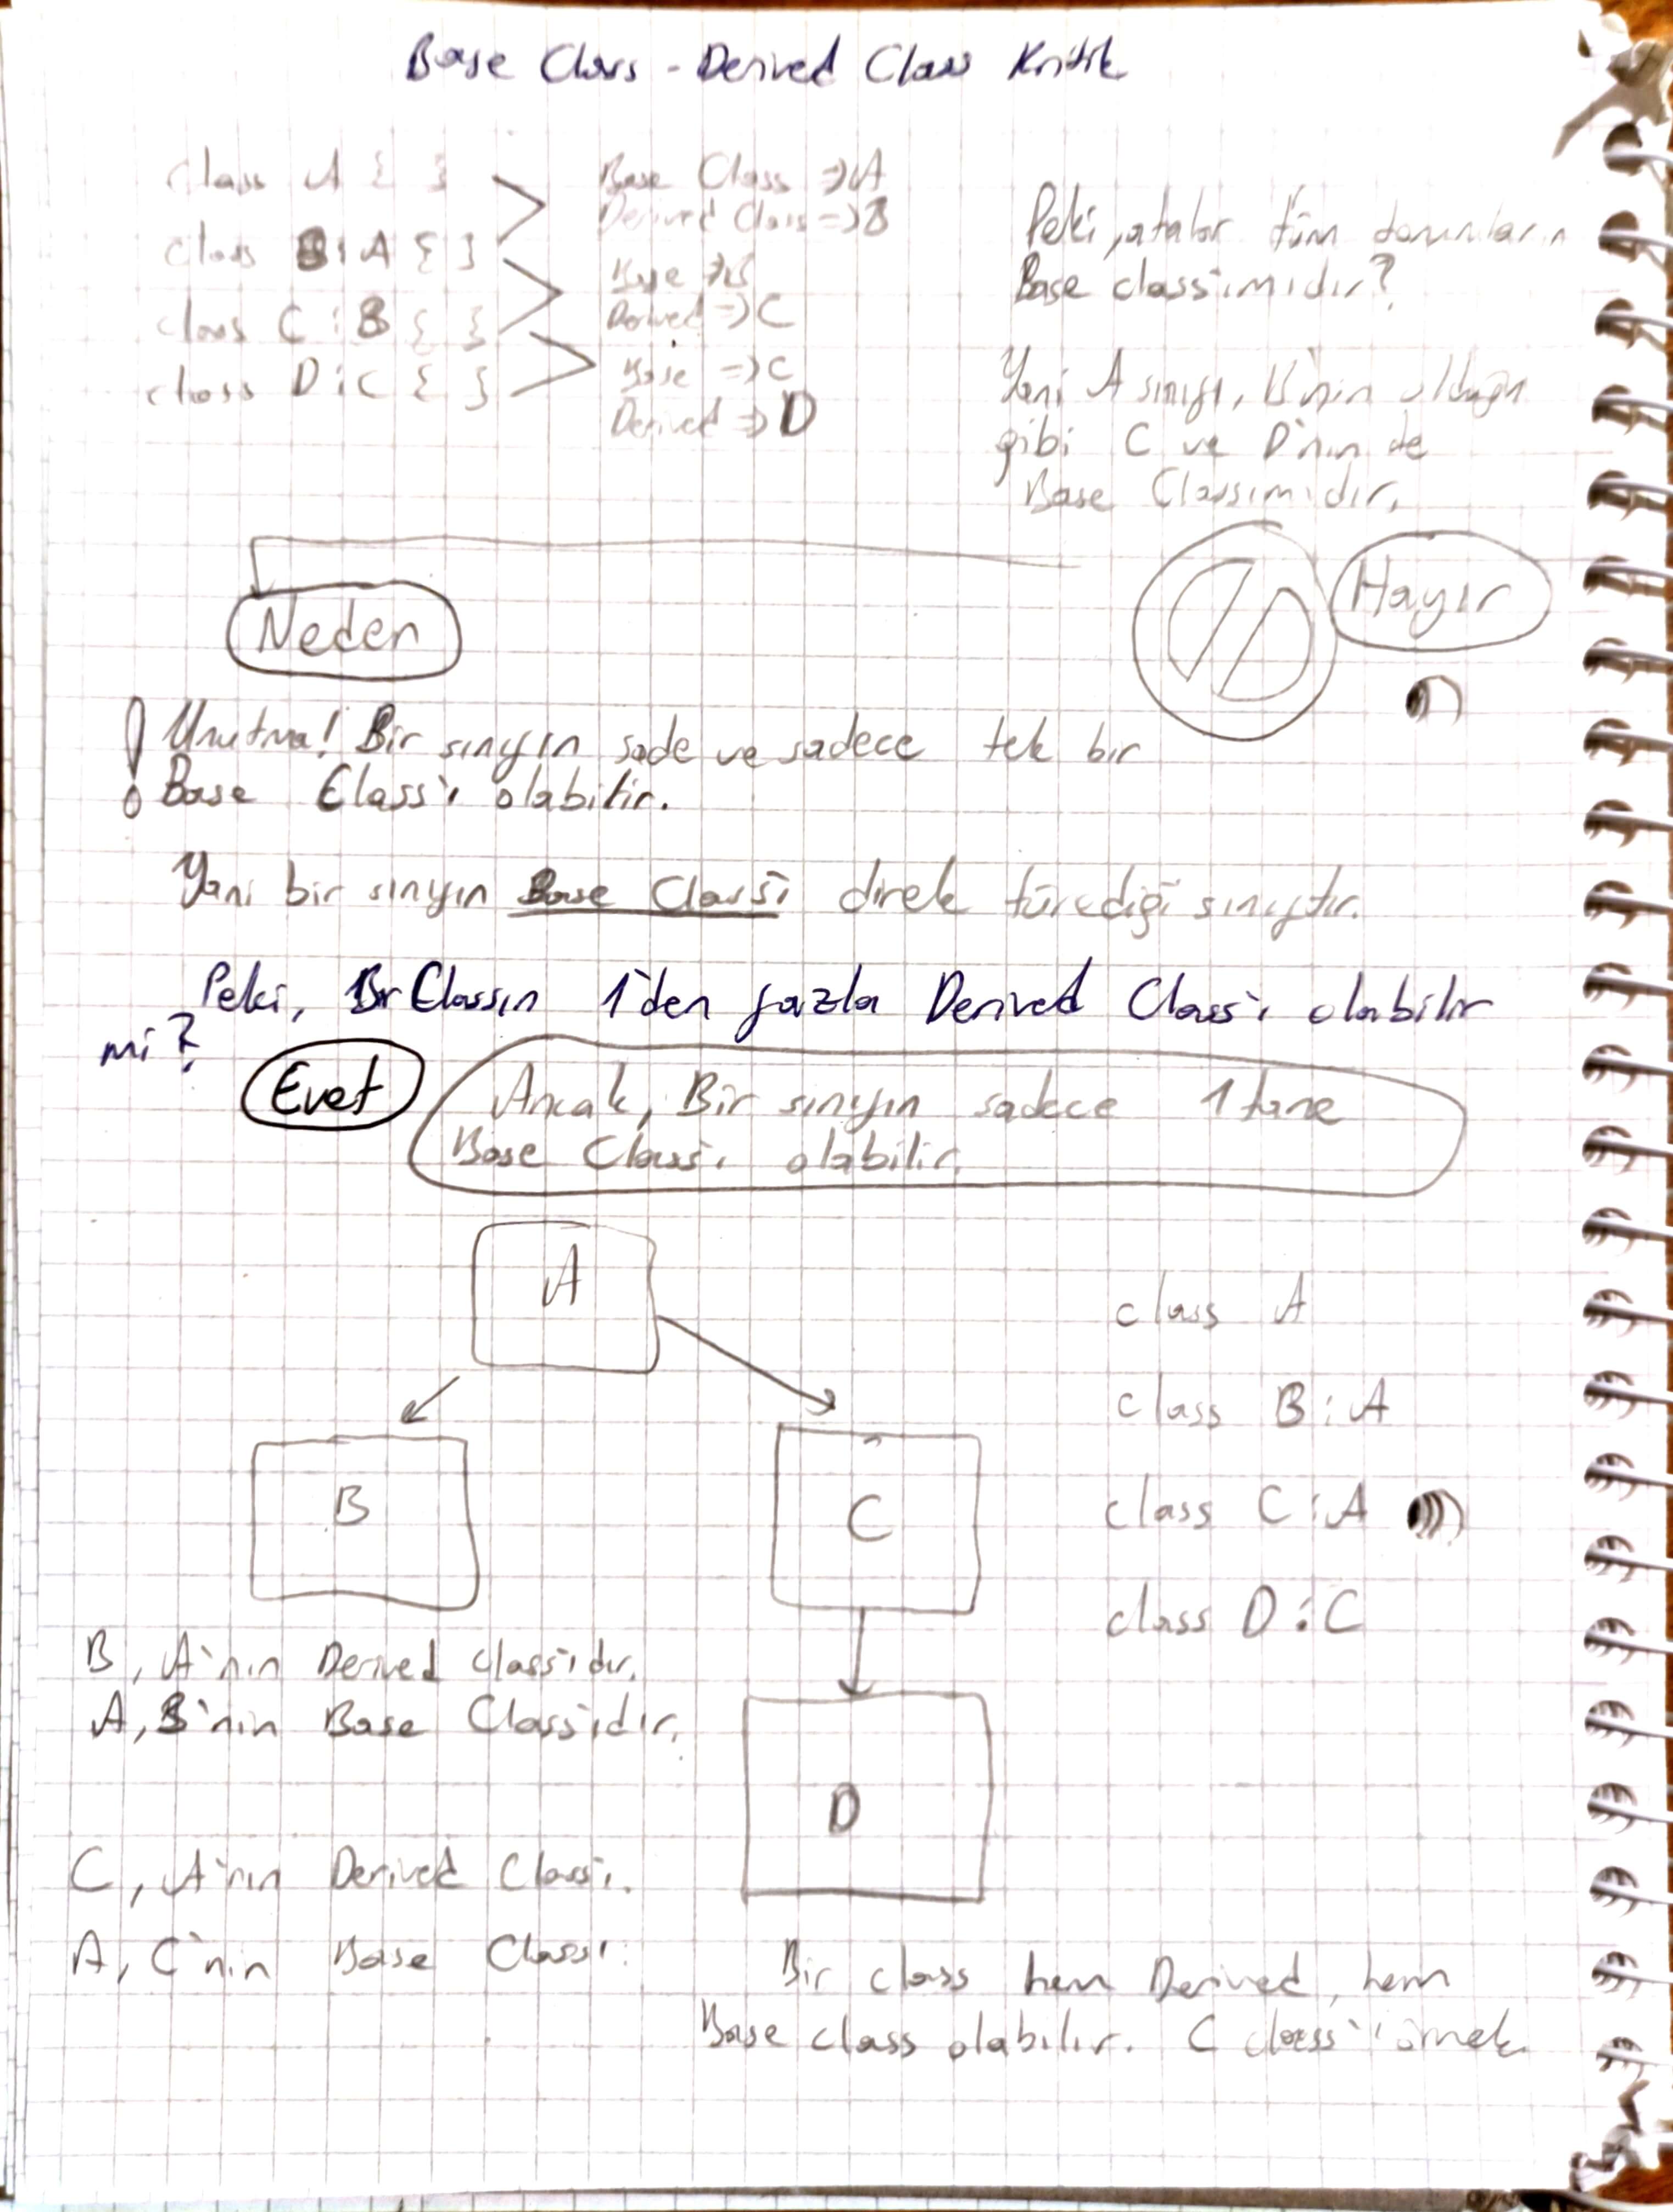 Base Class - Derived Class Kritik
class A { }
class B : A { }
class C : B { }
class D : C { }
Base Class => A
Derived Class => B
Base => B
Derived => C
Base => C
Derived => D
Peki, atalar tüm torunların
Base class'ımıdır?
Yani A sınıfı, B'nin olduğu
gibi C ve D'nin de
Base Classımıdır.
Hayır
Neden
! Unutma! Bir sınıfın sade ve sadece tek bir
Base Class'ı olabilir.
Yani bir sınıfın Base Class'ı direk türediği sınıftır.
Peki, Bir Classın 1'den fazla Derived Class'ı olabilir
mi?
Evet
Ancak, Bir sınıfın sadece 1 tane
Base Class'ı olabilir.
A
B
C
D
class A
class B : A
class C : A
class D : C
B, A'nın Derived class'ıdır.
A, B'nin Base Class'ıdır.
C, A'nın Derived Class'ı.
A, C'nin Base Class'ı.
Bir class hem Derived, hem
Base class olabilir. C class'ı örnek.